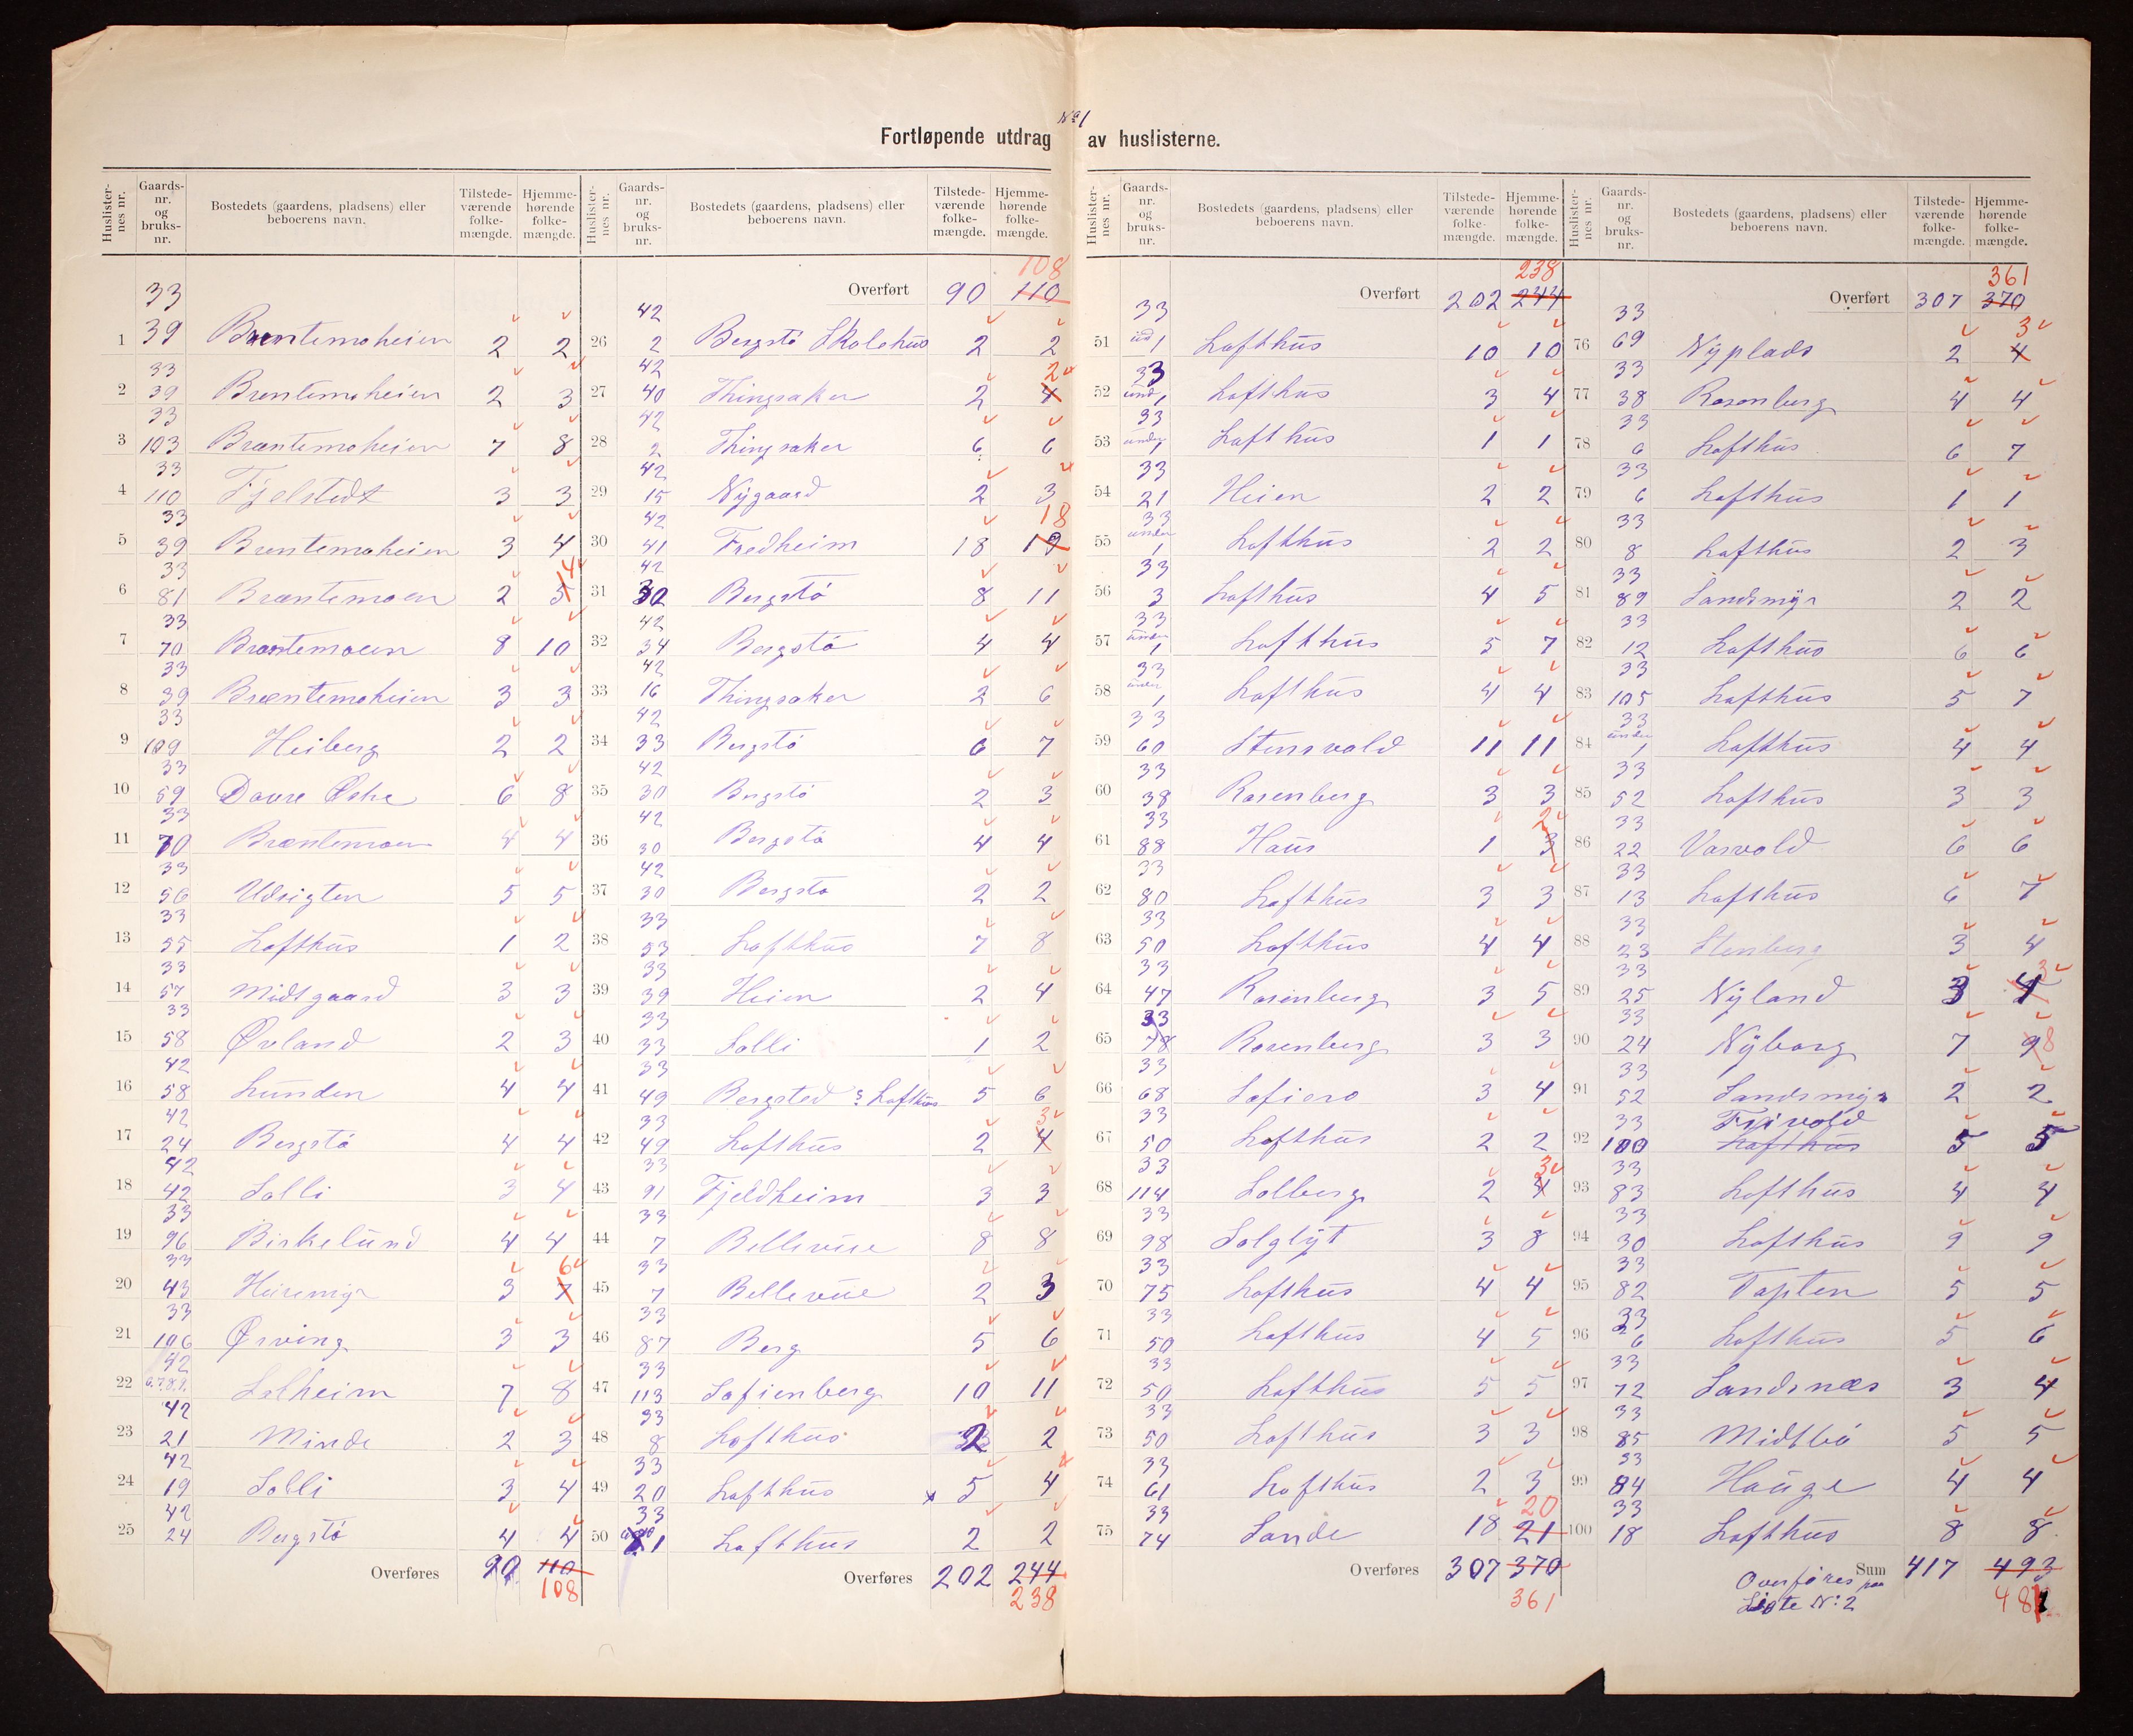 No 1
Fortløpende utdrag av huslisterne.
Huslisternes nr. Gaards-nr. og bruks-nr. Bostedets (gaardens, pladsens) eller beboerens navn. Tilstedeværende folkemængde. Hjemmehørende folkemængde.
1 33 39 Brentemoheien 2 2
2 33 39 Brentemoheien 2 3
3 33 103 Bræntemoheien 7 8
4 33 110 Fjelstedt 3 3
5 33 39 Brentemoheien 3 4
6 33 81 Bræntemoen 2 5 4
7 33 70 Bræntemoen 8 10
8 33 39 Bræntemoheien 3 3
9 33 109 Heiberg 2 2
10 33 59 Doure Øshe 6 8
11 33 70 Bræntemoen 4 4
12 33 56 Udsigten 5 5
13 33 55 Lofthus 1 2
14 33 57 Midtgaard 3 3
15 33 58 Øvland 2 3
16 42 58 Lunden 4 4
17 42 24 Bergstø 4 4
18 42 42 Solli 3 4
19 33 96 Birkelund 4 4
20 33 43 Heiremyr 3 7 6
21 33 106 Ørving 3 3
22 42 6.7.8.9. Solheim 7 8
23 42 21 Minde 2 3
24 42 19 Solli 3 4
25 42 24 Bergstø 4 4
Overføres 90 110
108
Huslisternes nr. Gaards-nr. og bruks-nr. Bostedets (gaardens, pladsens) eller beboerens navn. Tilstedeværende folkemængde. Hjemmehørende folkemængde.
108
Overført 90 110
26 42 2 Bergstø Skolehus 2 2
27 42 40 Thingsaker 2 4 2
28 42 2 Thingsaker 6 6
29 42 15 Nygaard 2 3
30 42 41 Fredheim 18 19 18
31 42 30 Bergstø 8 11
32 42 34 Bergstø 4 4
33 42 16 Thingsaker 2 6
34 42 33 Bergstø 6 7
35 42 30 Bergstø 2 3
36 42 30 Bergstø 4 4
37 42 30 Bergstø 2 2
38 33 53 Lofthus 7 8
39 33 39 Heien 2 4
40 33 33 Solli 1 2
41 33 49 Bergsted : Lofthus 5 6
42 33 49 Lofthus 2 4 3
43 33 91 Fjeldheim 3 3
44 33 7 Bellevue 8 8
45 33 7 Bellevue 2 3
46 33 87 Berg 5 6
47 33 113 Sofienberg 10 11
48 33 8 Lofthus 2 2
49 33 20 Lofthus x 5 4
50 33 1 Lofthus 2 2
Overføres 202 244
238
Huslisternes nr. Gaards-nr. og bruks-nr. Bostedets (gaardens, pladsens) eller beboerens navn. Tilstedeværende folkemængde. Hjemmehørende folkemængde.
238
Overført 202 244
51 33 ud 1 Lofthus 10 10
52 33 und 1 Lofthus 3 4
53 33 under 1 Lofthus 1 1
54 33 21 Heien 2 2
55 33 under 1 Lofthus 2 2
56 33 3 Lofthus 4 5
57 33 under 1 Lofthus 5 7
58 33 under 1 Lofthus 4 4
59 33 60 Stensvold 11 11
60 33 38 Rosenberg 3 3
61 33 88 Haus 1 3 2
62 33 80 Lofthus 3 3
63 33 50 Lofthus 4 4
64 33 47 Rosenberg 3 5
65 33 78 Rosenberg 3 3
66 33 68 Sofiero 3 4
67 33 50 Lofthus 2 2
68 33 114 Solberg 2 4 3
69 33 98 Solglyt 3 8
70 33 75 Lofthus 4 4
71 33 50 Lofthus 4 5
72 33 50 Lofthus 5 5
73 33 50 Lofthus 3 3
74 33 61 Lofthus 2 3
75 33 74 Sande 18 21 20
Overføres 307 370
361
Huslisternes nr. Gaards-nr. og bruks-nr. Bostedets (gaardens, pladsens) eller beboerens navn. Tilstedeværende folkemængde. Hjemmehørende folkemængde.
361
Overført 307 370
76 33 69 Nyplads 2 4 3
77 33 38 Rosenberg 4 4
78 33 6 Lofthus 6 7
79 33 6 Lofthus 1 1
80 33 8 Lofthus 2 3
81 33 89 Sandsmyr 2 2
82 33 12 Lofthus 6 6
83 33 105 Lofthus 5 7
84 33 under 1 Lofthus 4 4
85 33 52 Lofthus 3 3
86 33 22 Vasvold 6 6
87 33 13 Lofthus 6 7
88 33 23 Stenberg 3 4
89 33 25 Nyland 3 4 3
90 33 24 Nyborg 7 9 8
91 33 52 Sandsmyr 2 2
92 33 100 Frivold Lofthus 5 5
93 33 83 Lofthus 4 4
94 33 30 Lofthus 9 9
95 33 82 Topten 5 5
96 33 6 Lofthus 5 6
97 33 72 Sandsnæs 3 4
98 33 85 Midtbø 5 5
99 33 84 Hauge 4 4
100 33 18 Lofthus 8 8
Sum 417 493
Overføres paa
Liste No: 2
481